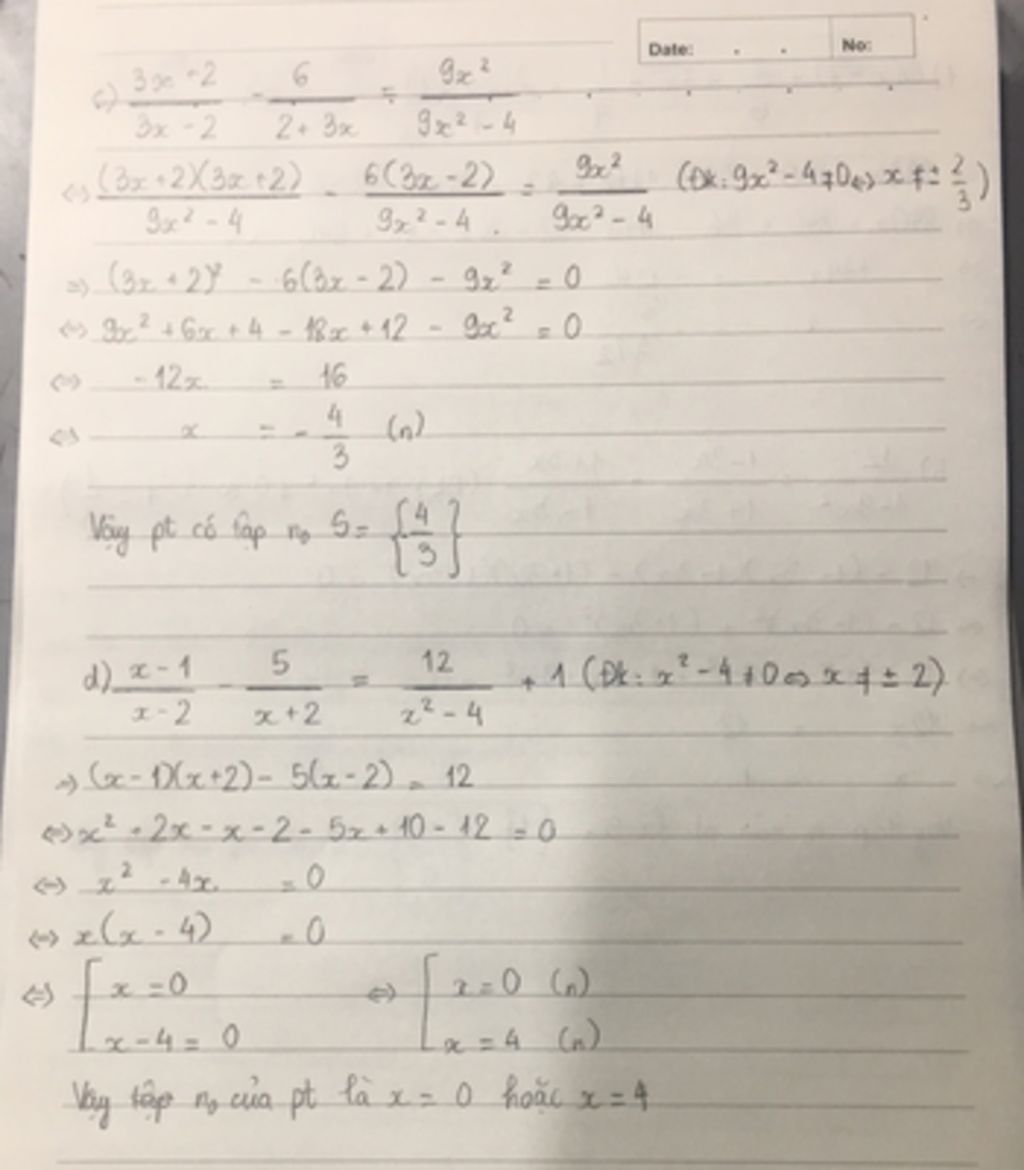 Date: . . No:
c) \frac{3x+2}{3x-2} - \frac{6}{2+3x} = \frac{9x^2}{9x^2-4}
⇔ \frac{(3x+2)(3x+2)}{9x^2-4} - \frac{6(3x-2)}{9x^2-4} = \frac{9x^2}{9x^2-4} (Đk: 9x² - 4 ≠ 0 ⇔ x ≠ ± \frac{2}{3})
⇒ (3x + 2)² - 6(3x - 2) - 9x² = 0
⇔ 9x² + 6x + 4 - 18x + 12 - 9x² = 0
⇔ -12x = 16
⇔ x = - \frac{4}{3} (n)
Vậy pt có tập n₀ S = {\frac{4}{3}}
d) \frac{x-1}{x-2} - \frac{5}{x+2} = \frac{12}{x^2-4} + 1 (Đk: x² - 4 ≠ 0 ⇔ x ≠ ± 2)
⇒ (x - 1)(x + 2) - 5(x - 2) = 12
⇔ x² + 2x - x - 2 - 5x + 10 - 12 = 0
⇔ x² - 4x = 0
⇔ x(x - 4) = 0
⇔ [ x = 0 ⇔ [ x = 0 (n)
x - 4 = 0 x = 4 (n)
Vậy tập n₀ của pt là x = 0 hoặc x = 4